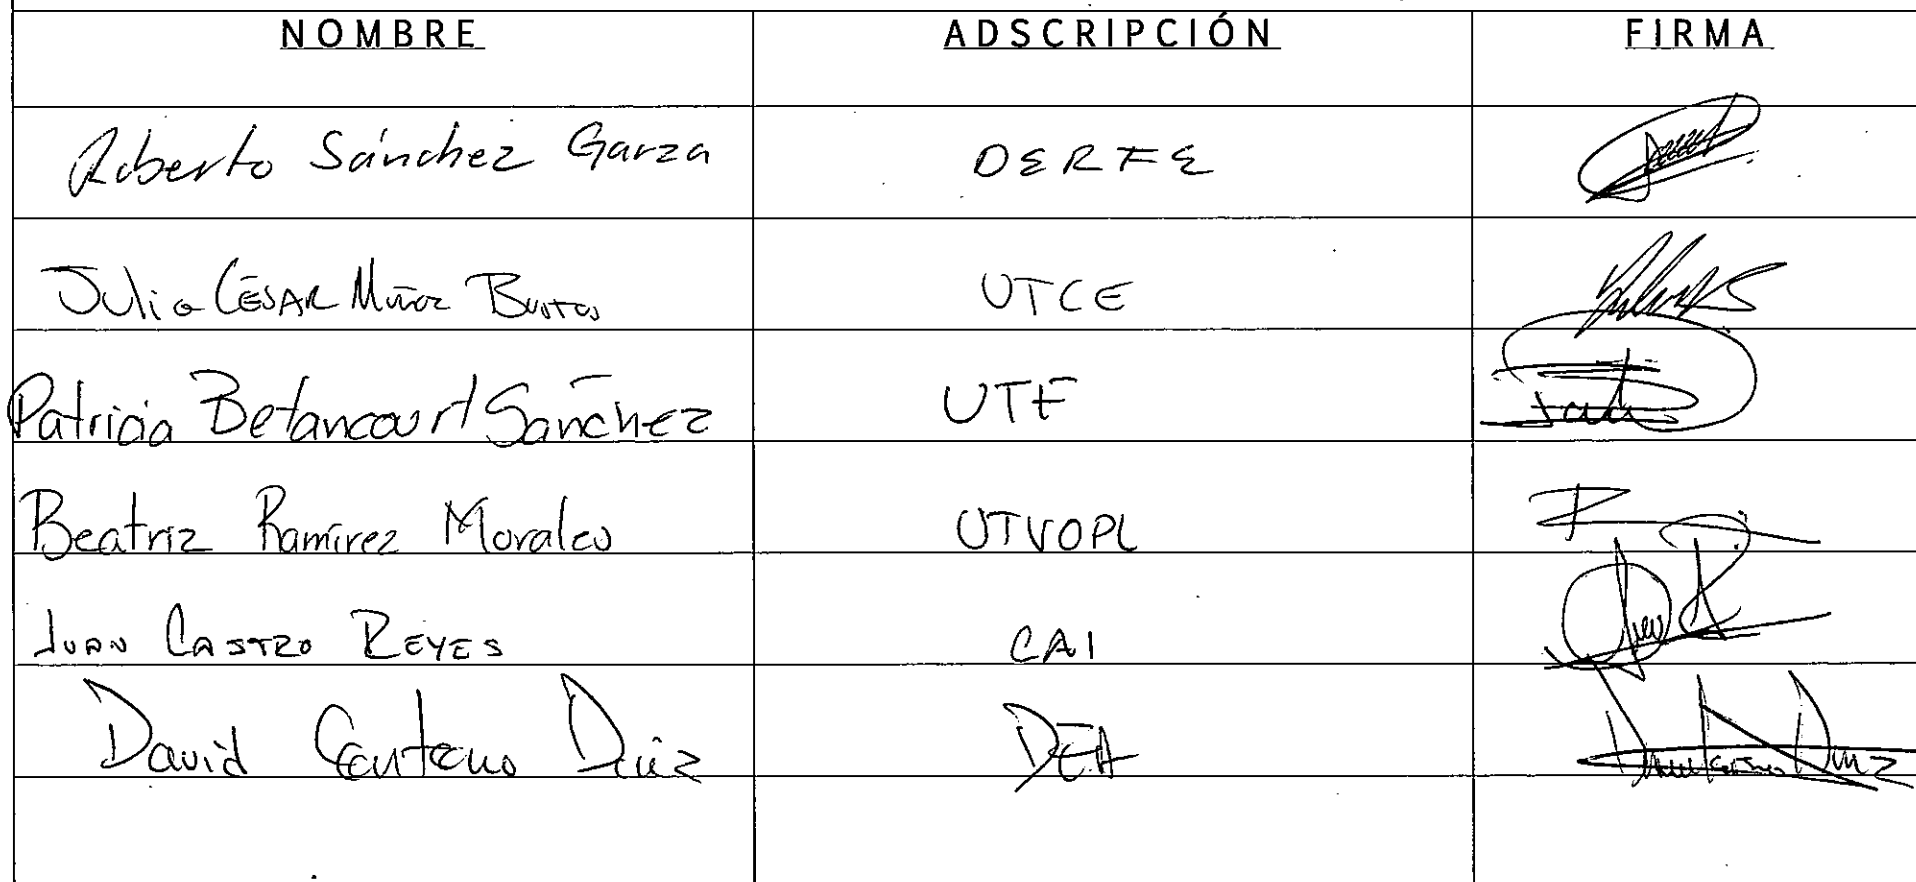 NOMBRE ADSCRIPCIÓN FIRMA
Roberto Sánchez Garza DERFE
Julio CÉSAR Muñoz Bustos UTCE
Patricia Betancourt Sánchez UTF
Beatriz Ramírez Morales UTVOPL
JUAN CASTRO REYES CAI
David Centeno Díaz DEA